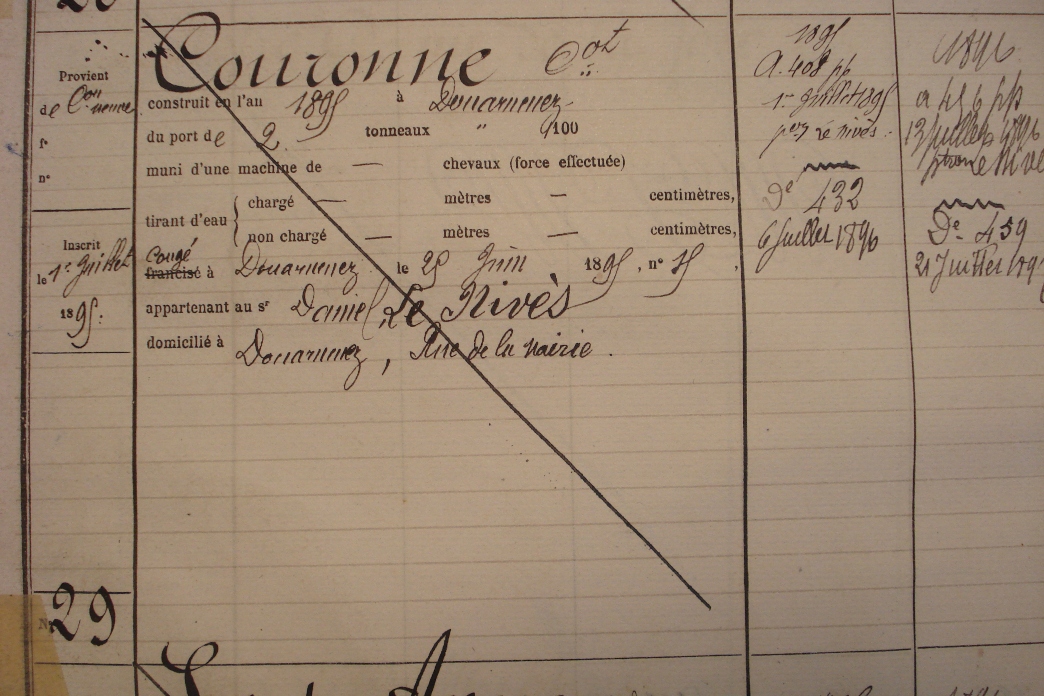 Provient
de Con neuve
f°
n°
Inscrit
le 1er Juillet
1895.
Couronne Cot
construit en l'an 1895 à Douarnenez
du port de 2. tonneaux " /100
muni d'une machine de — chevaux (force effectuée)
tirant d'eau { chargé — mètres — centimètres,
non chargé — mètres — centimètres,
Congé
francisé à Douarnenez le 25 Juin 1895, n° 15,
appartenant au sr Daniel Le Nivès
domicilié à Douarnenez, Rue de la mairie.
1895
A. 408 pp
1er Juillet 1895
De 432
6 Juillet 1896
1896
a 456 pp
13 Juillet 1896
De 459
21 Juillet 189
N° 29